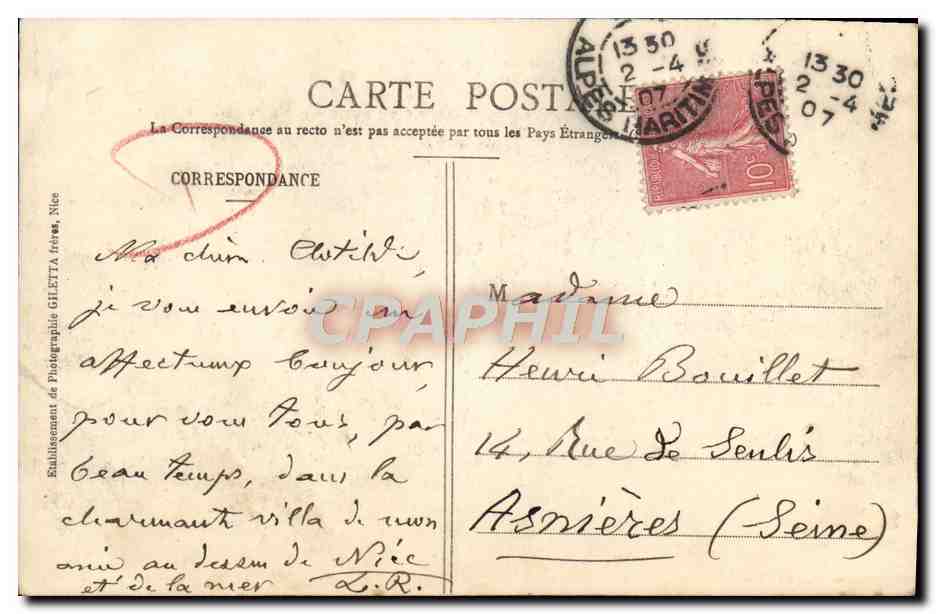 CARTE POSTALE
La Correspondance au recto n'est pas acceptée par tous les Pays Étrangers
CORRESPONDANCE
Etablissement de Photographie GILETTA frères, Nice
13 30
2 -4
07
ALPES MARITIM
13 30
2 -4
07
ALPES
10
Ma chère Clotilde,
je vous envoie un
affectueux bonjour
pour vous tous, par
beau temps, dans la
charmante villa de mon
amie au dessus de Nice
et de la mer L.R.
CPAPHIL
Madame
Henri Bouillet
14, Rue de Senlis
Asnières (Seine)